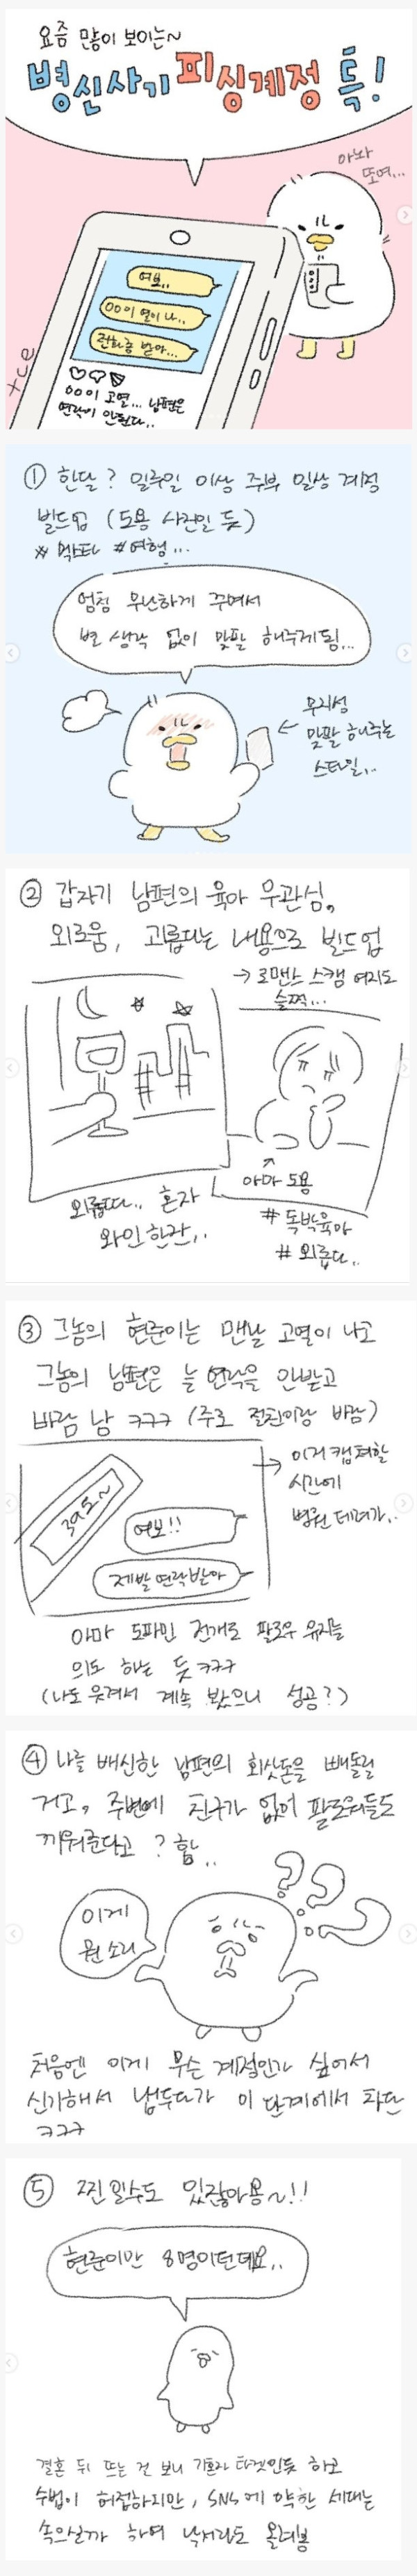 요즘 많이 보이는~
병신사기 피싱계정 특!
아놔
또여...
여보..
00이 열이 나..
전화좀 받아...
00이 고열... 남편은
연락이 안된다..
① 한달? 일주일 이상 주부 일상 계정
빌드업 (도용 사진일 듯)
#여행...
엄청 무난하게 꾸며서
별 생각 없이 맞팔 해주게됨...
무지성
맞팔 해주는
스타일..
② 갑자기 남편의 육아 무관심,
외로움, 괴롭다는 내용으로 빌드업
→ 로맨스 스캠 여지도
슬쩍...
외롭따.. 혼자
와인한잔..
아마 도용
# 독박육아
# 외롭다..
③ 그놈의 현준이는 맨날 고열이 나고
그놈의 남편은 늘 연락을 안받고
바람 남 ㅋㅋㅋ (주로 절친이랑 바람)
39.5~
여보!!
제발 연락받아
→ 이거 캡쳐할
시간에
병원 데려가..
아마 도파민 전개로 팔로우 유지를
의도 하는 듯 ㅋㅋㅋ
(나도 웃겨서 계속 봤으니 성공?)
④ 나를 배신한 남편의 회삿돈을 빼돌릴
거고, 주변에 친구가 없어 팔로워들도
끼워준다고? 함..
이게
뭔 소리
???
처음엔 이게 무슨 계정인가 싶어서
신기해서 냅두다가 이 단계에서 차단
ㅋㅋㅋ
⑤ 찐일수도 있잖아용~!!
현준이만 8명이던데요..
결혼 뒤 뜨는 건 보니 기혼자 타겟인듯 하고
수법이 허접하지만, SNS에 약한 세대는
속으실까 하여 낙서라도 올려봄